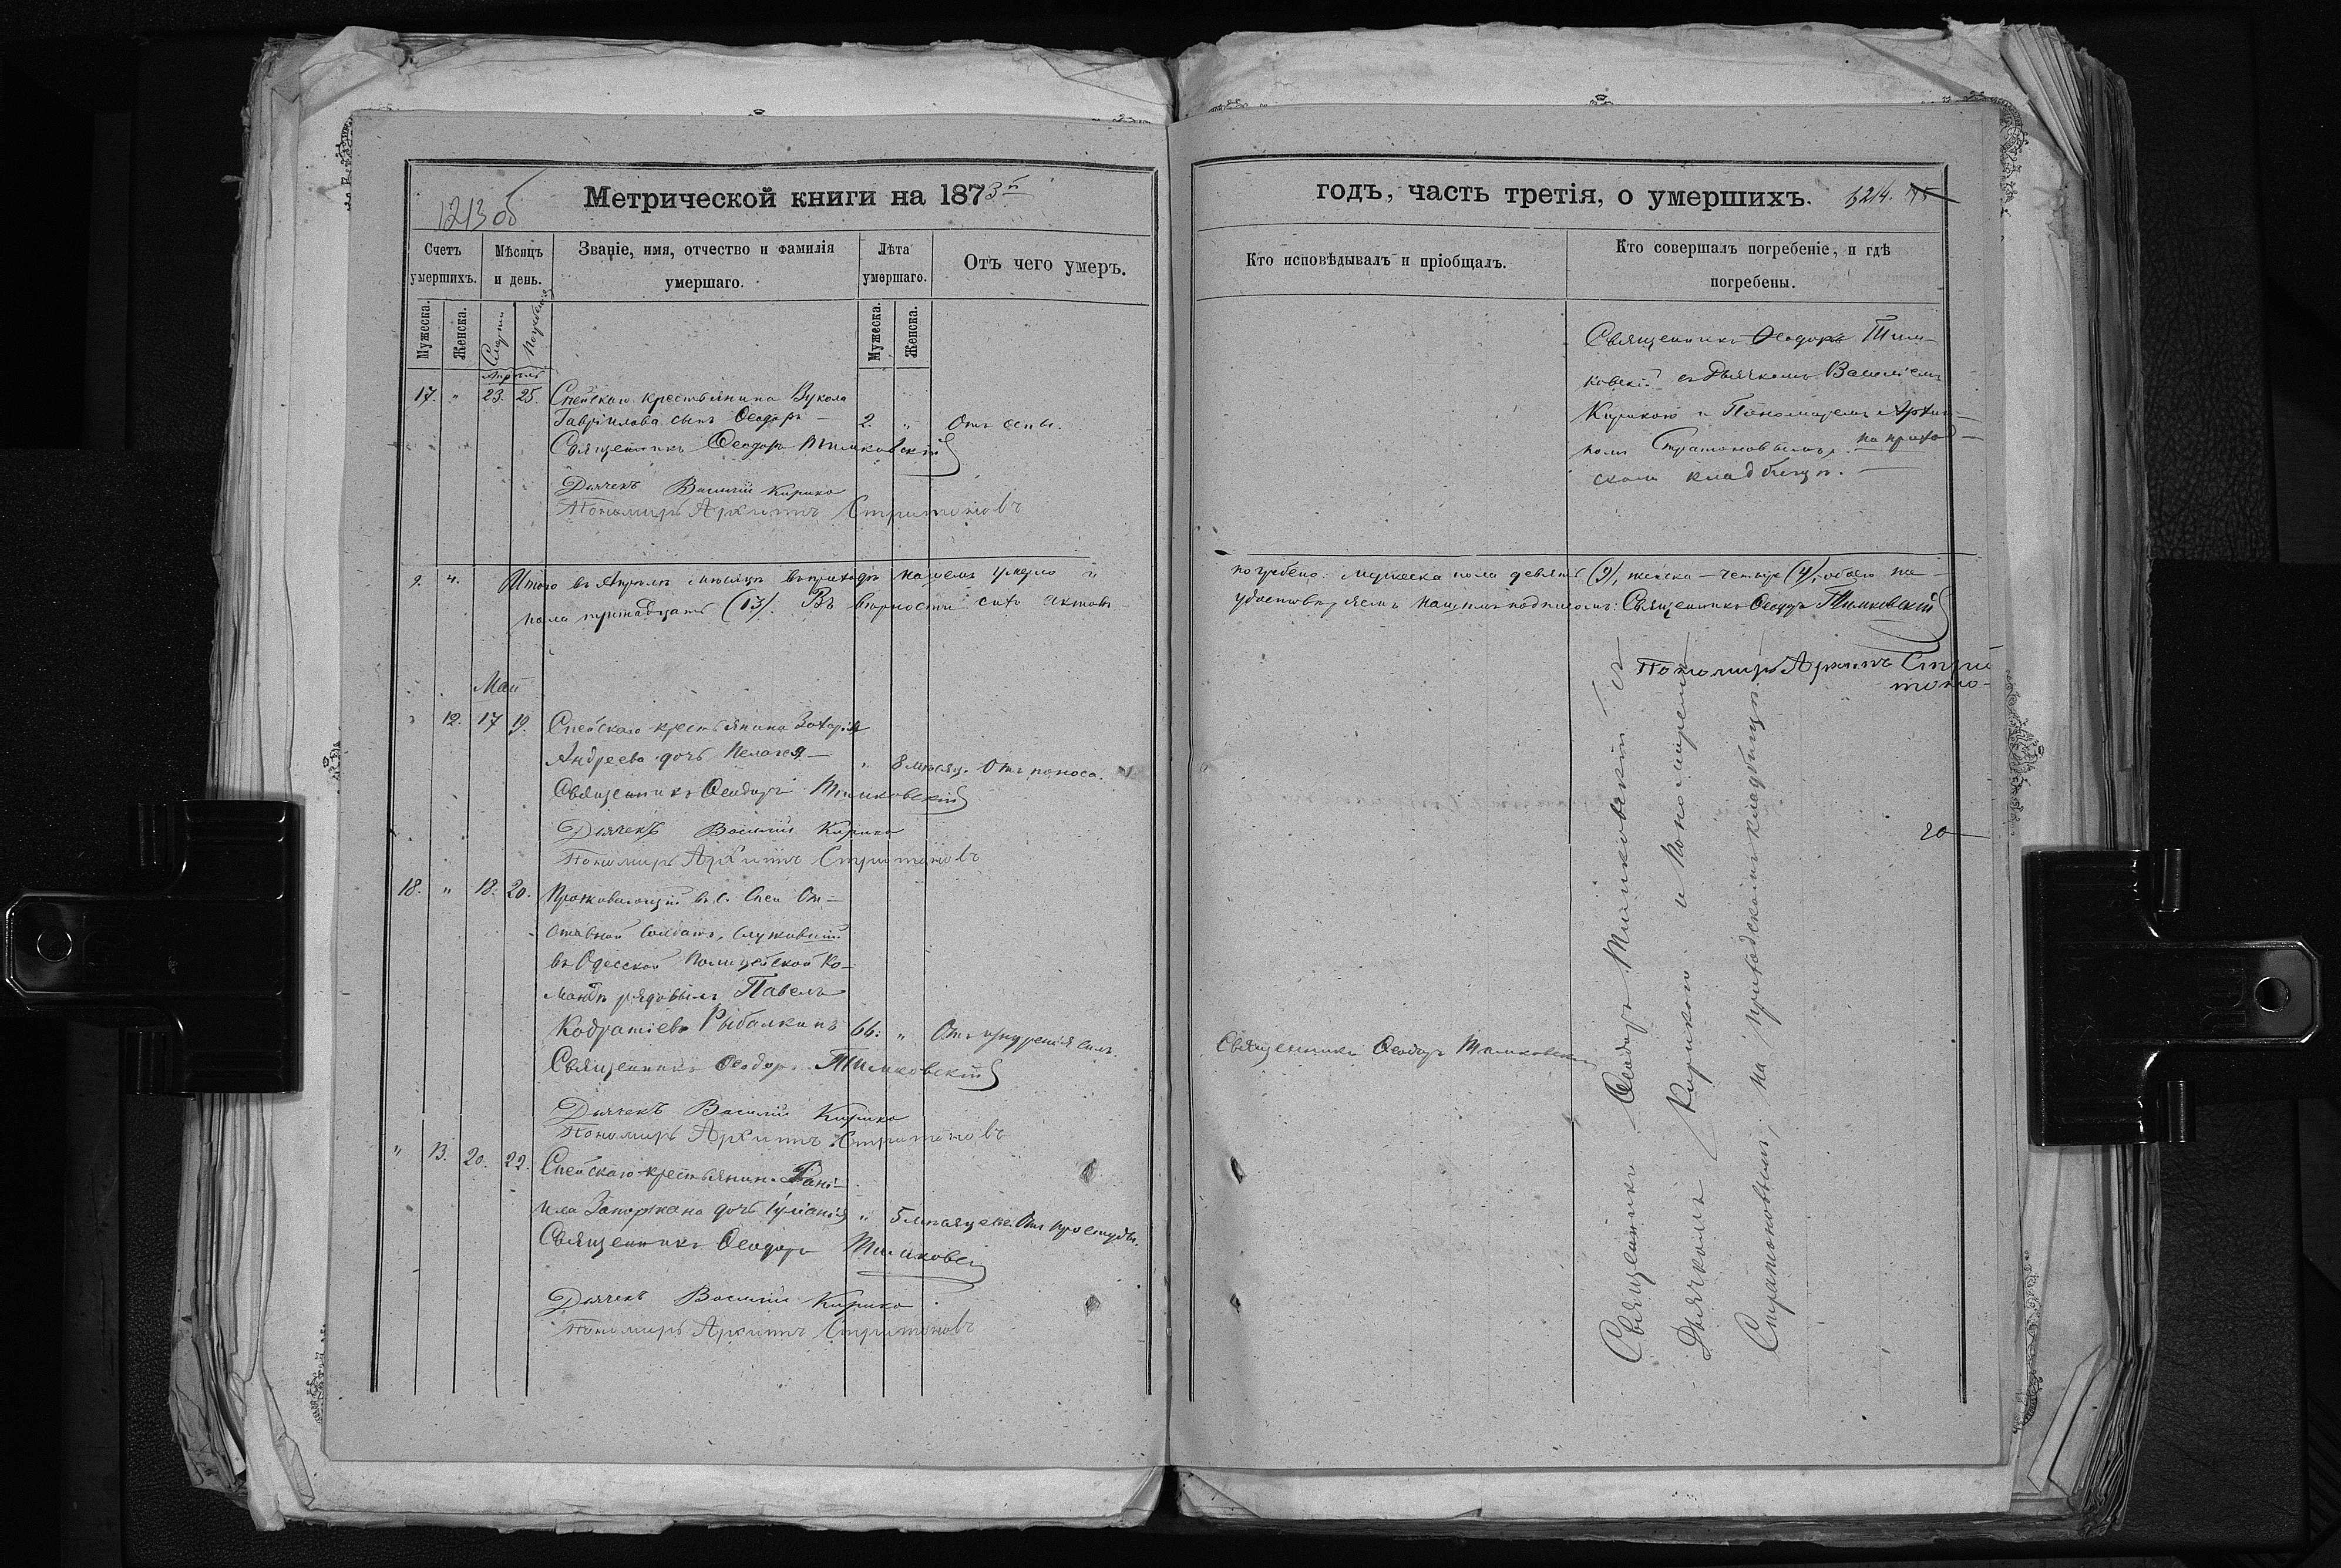 1213 об
Метрической книги на 1873 й
Счетъ умершихъ.
Мѣсяцъ и день.
Званіе, имя, отчество и фамилія умершаго.
Лѣта умершаго.
Отъ чего умеръ.
Мужеска.
Женска.
Смерти
Погребенія
Мужеска.
Женска.
Апрѣль
17. " 23. 25. Спейскаго крестьянина Вукола
Гавріилова сынъ Ѳеодоръ — 2. " Отъ оспы.
Священникъ Ѳеодоръ Тимковскій
Дьячекъ Василій Кирика
Пономарь Архипъ Стратоновъ
9. 4. Итого въ Апрѣлѣ мѣсяцѣ въ приходѣ нашемъ умерло и
пола тринадцать (13). Въ вѣрности сихъ актовъ
Май
" 12. 17 19. Спейскаго крестьянина Захарія
Андреева дочь Пелагея — " 8 мѣсяц. Отъ поноса.
Священникъ Ѳеодоръ Тимковскій
Дьячекъ Василій Кирика
Пономарь Архипъ Стратоновъ
18. " 18. 20. Проживающій въ с. Спеи От-
ставной Солдатъ, служовшій
въ Одесской Полицейской Ко-
мандѣ рядовымъ Павелъ
Кодратіевъ Рыбалкинъ 66. " Отъ изнуренія силъ.
Священникъ Ѳеодоръ Тимковскій
Дьячекъ Василій Кирика
Пономарь Архипъ Стратоновъ
" 13. 20. 22. Спейскаго крестьянина Дані-
ила Запоржана дочь Іуліанія " 5 мѣсяцевъ. Отъ простуды.
Священникъ Ѳеодоръ Тимковскій
Дьячекъ Василій Кирика
Пономарь Архипъ Стратоновъ
годъ, часть третія, о умершихъ.
1214.
Кто исповѣдывалъ и пріобщалъ.
Кто совершалъ погребеніе, и гдѣ погребены.
Священникъ Ѳеодоръ Тим-
ковскій съ Дьячкомъ Василіемъ
Кирикою и Пономаремъ Архип-
помъ Стратоновымъ, на приход-
скомъ кладбищѣ. —
погребено: мужеска пола девять (9), женска — четыре (4), обоего
удостовѣряемъ нашимъ подписомъ: Священникъ Ѳеодоръ Тимковскій
Пономарь Архипъ Страто-
20
Священникъ Ѳеодоръ Тимковскій
Священникъ Ѳеодоръ Тимковскій съ
Дьячкомъ Кирикою и Пономаремъ
Стратоновымъ, на приходскомъ кладбищѣ.